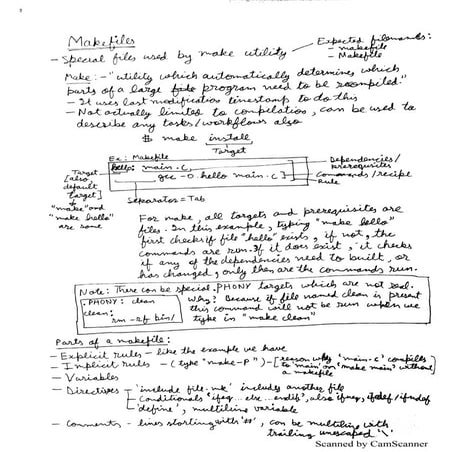 Makefiles
- Special files used by make utility
Expected filenames:
- makefile
- Makefile
Make: - "utility which automatically determines which
parts of a large program need to be recompiled"
- It uses last modification timestamp to do this
- Not actually limited to compilation, can be used to
describe any tasks/workflows also
$ make install
Target
Ex: Makefile
hello: main.c
gcc -o hello main.c
Dependencies/
prerequisites
Commands/recipe
Rule
Target
[also,
default
target]
"make" and
"make hello"
are same
Separator = Tab
For make, all targets and prerequisites are
files. In this example, typing "make hello"
first checks if file "hello" exists, if not, the
commands are run. If it does exist, it checks
if any of the dependencies need to built, or
has changed, only then are the commands run.
Note: There can be special .PHONY targets which are not real.
.PHONY: clean
clean:
rm -rf bin/
Why? Because if file named clean is present
this command will not be run when we
type in "make clean"
Parts of a makefile:
- Explicit rules - like the example we have
- Implicit rules - (type "make -p") - [reason why 'main.c' compiles
to 'main' on 'make main' without
a makefile
- Variables
- Directives - 'include file.mk' includes another file
- Conditionals 'ifeq... else... endif', also ifneq, ifdef/ifndef
- 'define', multiline variable
- Comments - lines starting with '#', can be multiline with
trailing unescaped '\'
Scanned by CamScanner